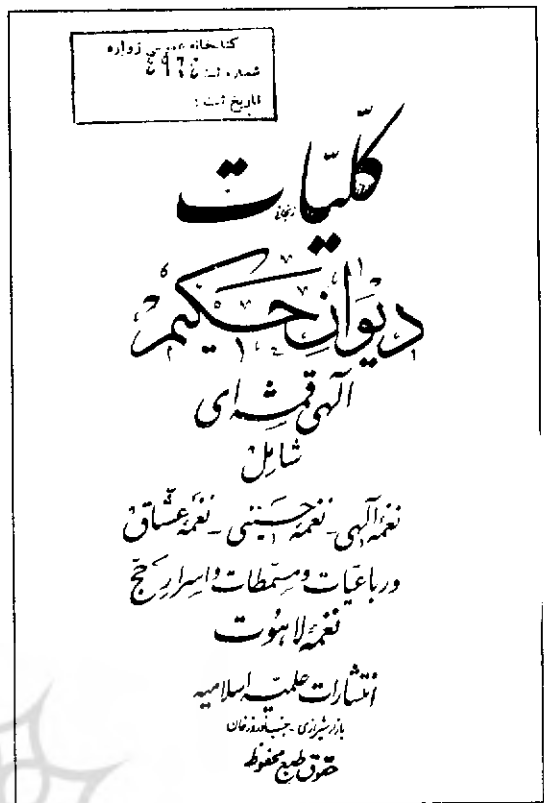 کتابخانه عمومی زواره
شماره ثبت: ٤٩٦٤
تاریخ ثبت :
کلّیّات
دیوانِ حکیم
الهی قمشه‌ای
شامل
نغمهٔ الهی - نغمهٔ حسینی - نغمهٔ عشّاق
و رباعیّات و مسمّطات و اسرار حج
نغمهٔ لاهوت
انتشارات علمیه اسلامیه
بازار شیرازی - جنب نوروزخان
حقوق طبع محفوظ